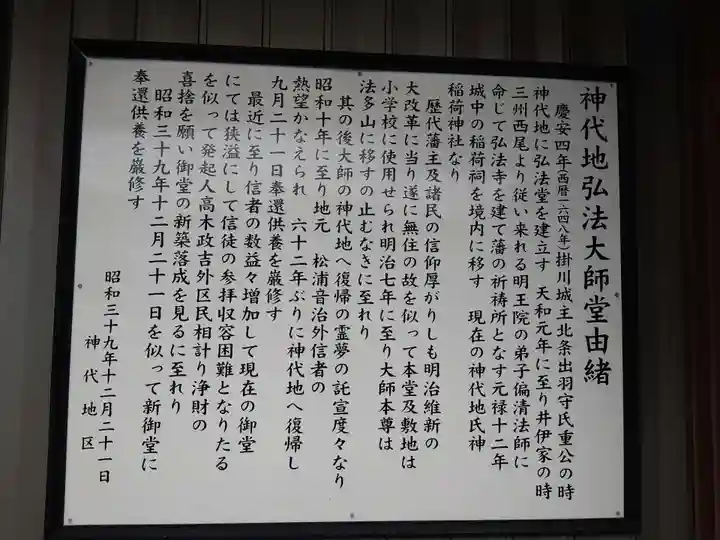 神代地弘法大師堂由緒
慶安四年(西暦一六四八年)掛川城主北条出羽守氏重公の時
神代地に弘法堂を建立す 天和元年に至り井伊家の時
三州西尾より従い来れる明王院の弟子偏清法師に
命じて弘法寺を建て藩の祈祷所となす元禄十二年
城中の稲荷祠を境内に移す 現在の神代地氏神
稲荷神社なり
歴代藩主及諸民の信仰厚がりしも明治維新の
大改革に当り遂に無住の故を似って本堂及敷地は
小学校に使用せられ明治七年に至り大師本尊は
法多山に移すの止むなきに至れり
其の後大師の神代地へ復帰の霊夢の託宣度々なり
昭和十年に至り地元 松浦音治外信者の
熱望かなえられ 六十二年ぶりに神代地へ復帰し
九月二十一日奉還供養を厳修す
最近に至り信者の数益々増加して現在の御堂
にては狭溢にして信徒の参拝収容困難となりたる
を似って発起人高木政吉外区民相計り浄財の
喜捨を願い御堂の新築落成を見るに至れり
昭和三十九年十二月二十一日を似って新御堂に
奉還供養を厳修す
昭和三十九年十二月二十一日
神代地区